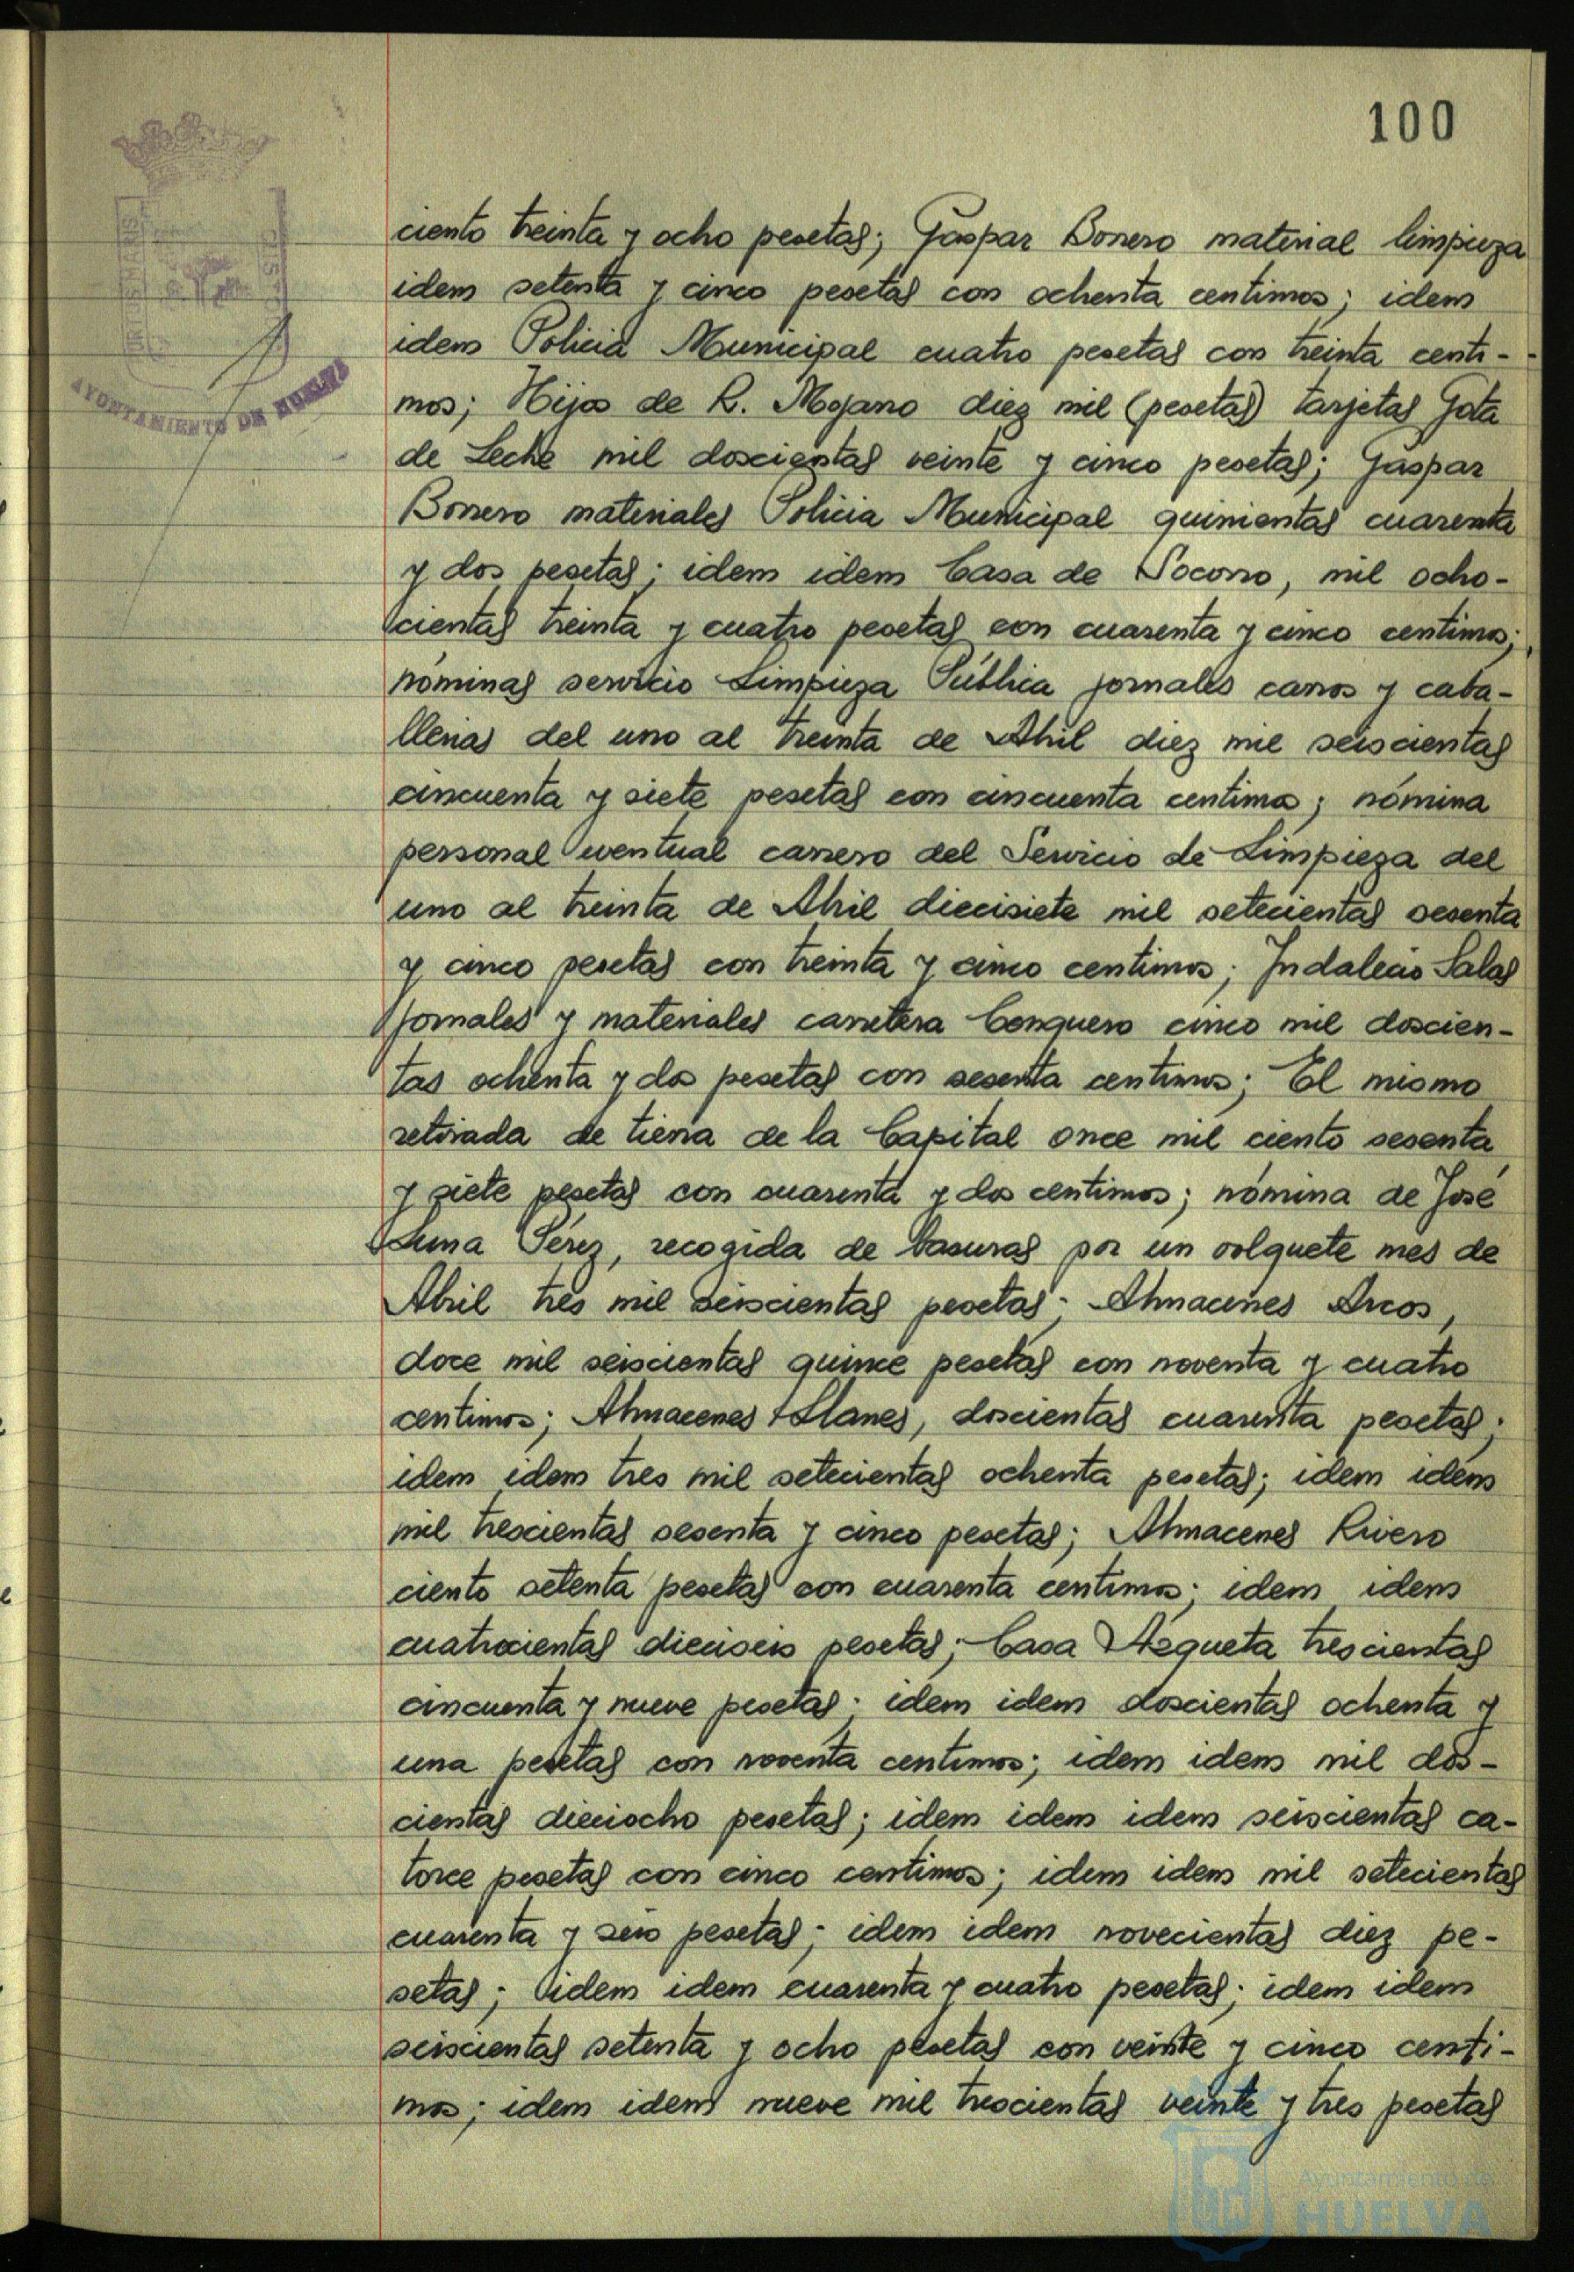 100
ciento treinta y ocho pesetas; Gaspar Borrero material limpieza
idem setenta y cinco pesetas con ochenta centimos; idem
idem Policia Municipal cuatro pesetas con treinta centi-
mos; Hijos de R. Mojarro diez mil (pesetas) tarjetas Gota
de Leche mil doscientas veinte y cinco pesetas; Gaspar
Borrero materiales Policia Municipal quinientas cuarenta
y dos pesetas; idem idem Casa de Socorro, mil ocho-
cientas treinta y cuatro pesetas con cuarenta y cinco centimos;
nóminas servicio Limpieza Pública jornales carros y caba-
llerias del uno al treinta de Abril diez mil seiscientas
cincuenta y siete pesetas con cincuenta centimos; nómina
personal eventual carrero del Servicio de Limpieza del
uno al treinta de Abril diecisiete mil setecientas sesenta
y cinco pesetas con treinta y cinco centimos; Indalecio Salas
jornales y materiales carretera Conquero cinco mil doscien-
tas ochenta y dos pesetas con sesenta centimos; El mismo
retirada de tierra de la Capital once mil ciento sesenta
y siete pesetas con cuarenta y dos centimos; nómina de José
Luna Pérez, recogida de basuras por un volquete mes de
Abril tres mil seiscientas pesetas; Almacenes Arcos,
doce mil seiscientas quince pesetas con noventa y cuatro
centimos; Almacenes Llanes, doscientas cuarenta pesetas;
idem idem tres mil setecientas ochenta pesetas; idem idem
mil trescientas sesenta y cinco pesetas; Almacenes Rivero
ciento setenta pesetas con cuarenta centimos; idem idem
cuatrocientas dieciseis pesetas; Casa Azqueta trescientas
cincuenta y nueve pesetas; idem idem doscientas ochenta y
una pesetas con noventa centimos; idem idem mil dos-
cientas dieciocho pesetas; idem idem idem seiscientas ca-
torce pesetas con cinco centimos; idem idem mil setecientas
cuarenta y seis pesetas; idem idem novecientas diez pe-
setas; idem idem cuarenta y cuatro pesetas; idem idem
seiscientas setenta y ocho pesetas con veinte y cinco centi-
mos; idem idem nueve mil trescientas veinte y tres pesetas
AYUNTAMIENTO DE HUELVA
Ayuntamiento de
HUELVA